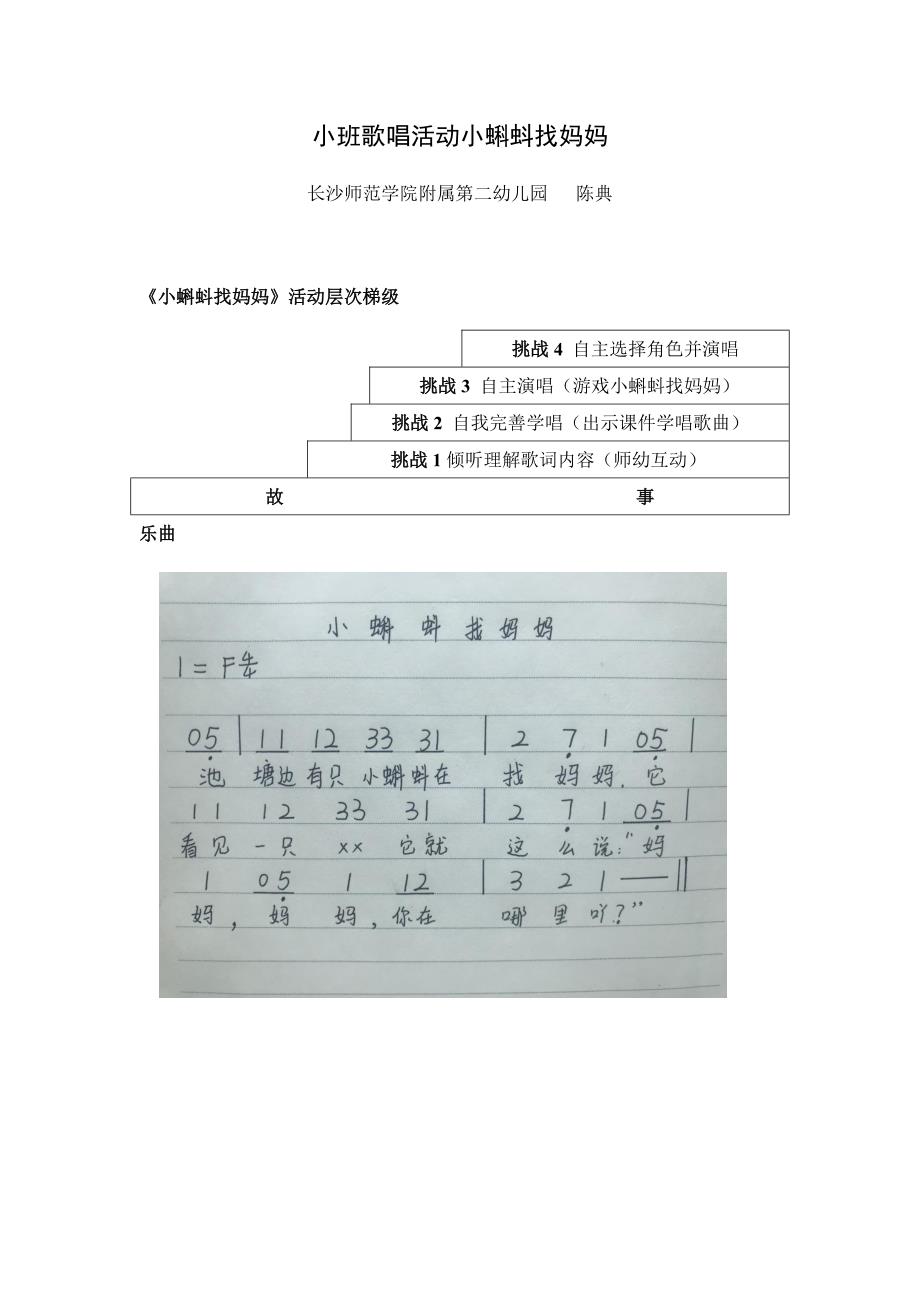 小班歌唱活动小蝌蚪找妈妈
长沙师范学院附属第二幼儿园 陈典
《小蝌蚪找妈妈》活动层次梯级
挑战 4 自主选择角色并演唱
挑战 3 自主演唱（游戏小蝌蚪找妈妈）
挑战 2 自我完善学唱（出示课件学唱歌曲）
挑战 1 倾听理解歌词内容（师幼互动）
故 事
乐曲
小 蝌 蚪 找 妈 妈
1 = F
05 | 11 12 33 31 | 2 7 1 05 |
池 塘边 有只 小蝌 蚪在 找 妈 妈, 它
11 12 33 31 | 2 7 1 05 |
看见 一只 ×× 它就 这 么 说:“妈
1 05 1 12 | 3 2 1 — ||
妈, 妈 妈, 你在 哪 里 吖?”